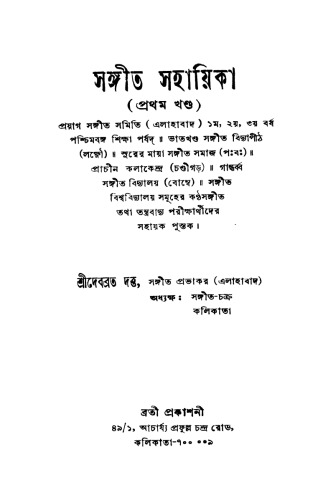 সঙ্গীত সহায়িকা
(প্রথম খণ্ড)
প্রয়াগ সঙ্গীত সমিতি (এলাহাবাদ) ১ম, ২য়, ৩য় বর্ষ
পশ্চিমবঙ্গ শিক্ষা পর্ষদ্ ॥ ভাতখণ্ড সঙ্গীত বিদ্যাপীঠ
(লক্ষ্ণৌ) ॥ সুরের মায়া সঙ্গীত সমাজ (পঃবঃ) ॥
প্রাচীন কলাকেন্দ্র (চণ্ডীগড়) ॥ গান্ধর্ব্ব
সঙ্গীত বিদ্যালয় (বোম্বে) ॥ সঙ্গীত
বিশ্ববিদ্যালয় সমূহের কণ্ঠসঙ্গীত
তথা তন্ত্রবাদ্য পরীক্ষার্থীদের
সহায়ক পুস্তক।
শ্রীদেবব্রত দত্ত, সঙ্গীত প্রভাকর (এলাহাবাদ)
অধ্যক্ষ: সঙ্গীত-চক্র
কলিকাতা
ব্রতী প্রকাশনী
৪৯/১, আচার্য্য প্রফুল্ল চন্দ্র রোড,
কলিকাতা-৭০০ ০০৯